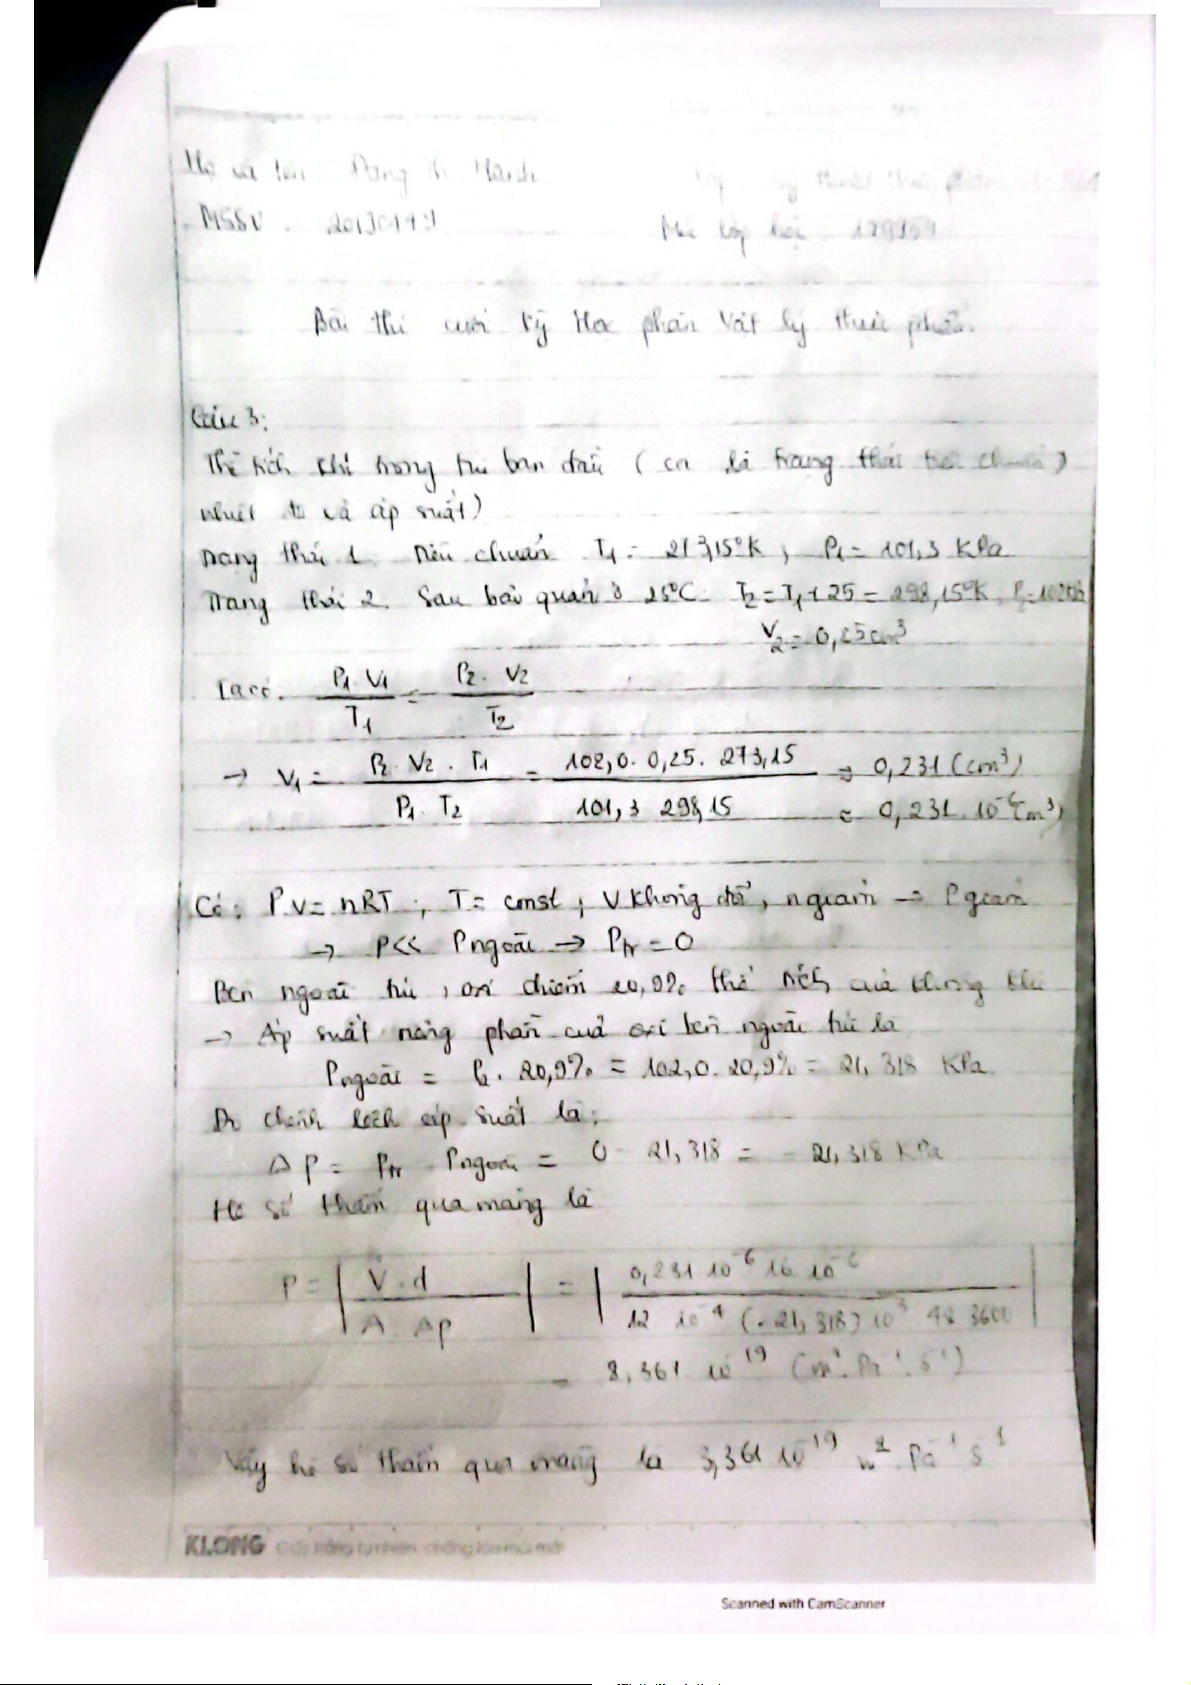 Họ và tên Đặng Hạnh
MSSV.
Mã lớp học
Bài thi cuối kỳ Học phần Vật lý thực phẩm
Câu 3:
Thể tích khí trong túi ban đầu ( là trạng thái tiêu chuẩn)
nhiệt độ và áp suất)
Trạng thái 1. Tiêu chuẩn T1 = 273,15°K ; P1 = 101,3 KPa
Trạng thái 2. Sau bảo quản ở 25°C. T2 = T1 + 25 = 298,15°K,
V2 = 0,25 cm³
Ta có: P1. V1 / T1 = P2. V2 / T2
→ V1 = P2. V2. T1 / P1. T2 = 102,0. 0,25. 273,15 / 101,3 298,15 = 0,231 (cm³)
= 0,231. 10⁻⁶ (m³)
Có: P.V = nRT ; T = const ; V không đổi, n giảm → P giảm
→ P << Pngoài → Ptr = 0
Bên ngoài túi, oxi chiếm 20,9% thể tích của không khí
→ Áp suất riêng phần của oxi bên ngoài túi là
Pngoài = P2. 20,9% = 102,0. 20,9% = 21,318 KPa
Độ chênh lệch áp suất là:
Δp = Ptr - Pngoài = 0 - 21,318 = - 21,318 KPa
Hệ số thấm qua màng là
P = | V. d / A. Δp | = | 0,231 10⁻⁶ 16 10⁻⁶ / 12 10⁻⁴ (-21,318) 10³ 48 3600 |
Vậy hệ số thấm qua màng là
KLONG Giấy trắng tự nhiên, chống lóa mỏi mắt
Scanned with CamScanner